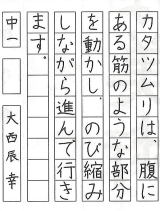 カタツムリは、腹に
ある筋のような部分
を動かし、のび縮み
しながら進んで行き
ます。
中一
大西辰幸